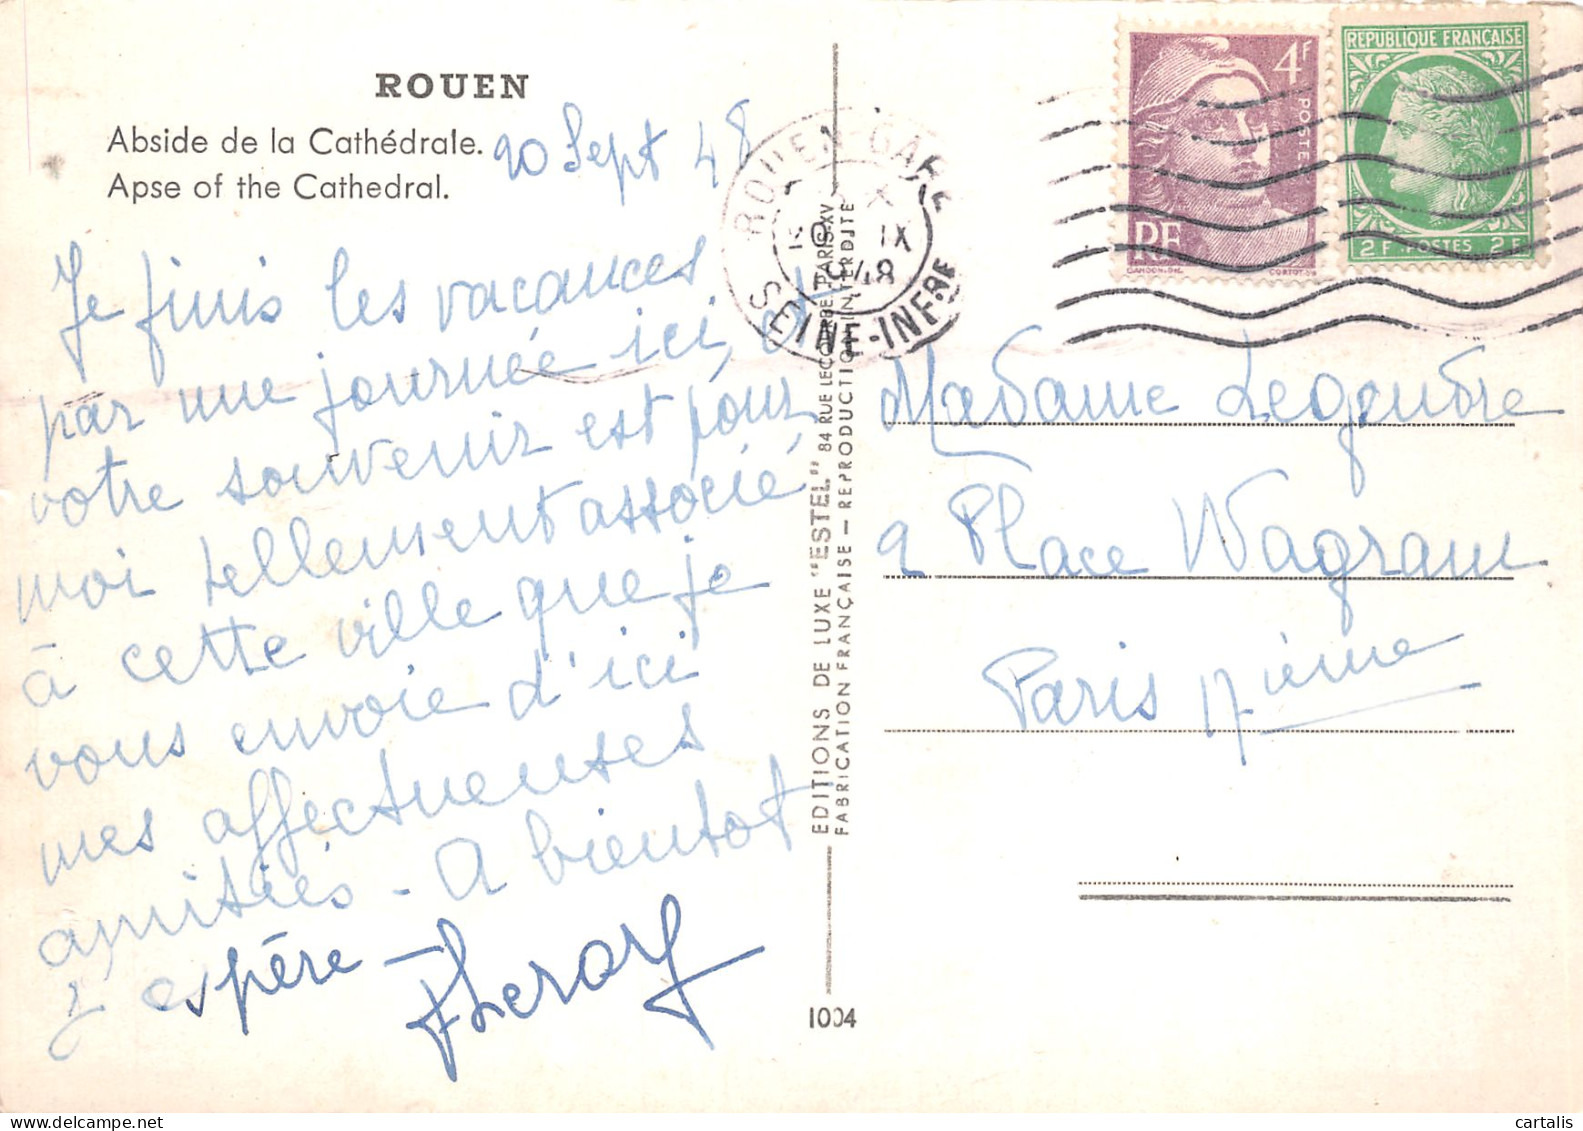 ROUEN
Abside de la Cathédrale.
Apse of the Cathedral.
20 Sept 48
Je finis les vacances
par une journée ici, et
votre souvenir est pour
moi tellement associé
à cette ville que je
vous envoie d'ici
mes affectueuses
amitiés - A bientot
j'espère -
EDITIONS DE LUXE "ESTEL" 84 RUE LECOURBE PARIS-XV
FABRICATION FRANÇAISE — REPRODUCTION INTERDITE
1004
ROUEN-GARE
IX
1948
SEINE-INFRE
4F
POSTES
RF
GANDON-DEL.
CORTOT-SC
REPUBLIQUE FRANÇAISE
2F POSTES 2F
Madame Legendre
2 Place Wagram
Paris 17ième
cartalis